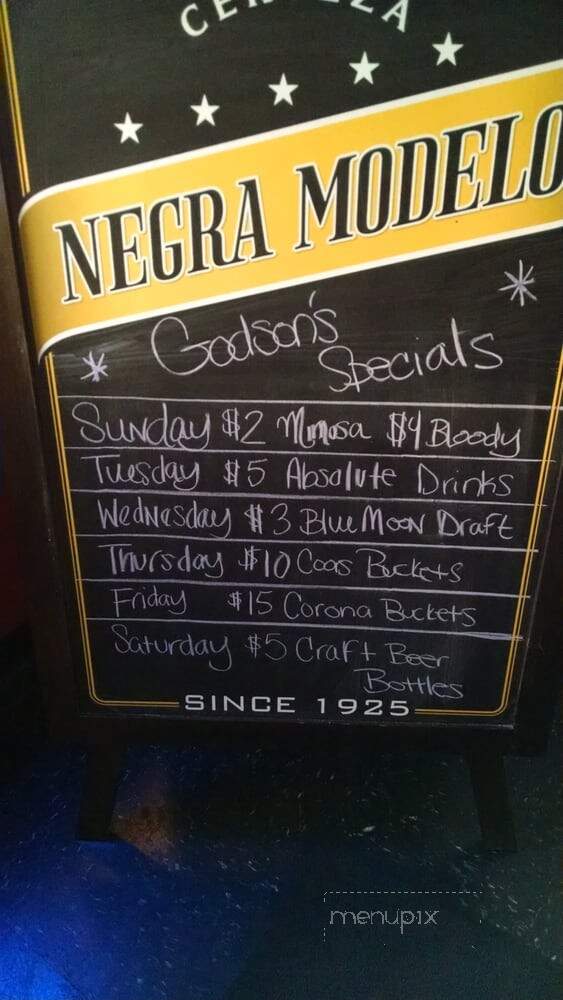 CERVEZA
NEGRA MODELO
Godson's
Specials
Sunday $2 Mimosa $4 Bloody
Tuesday $5 Absolute Drinks
Wednesday $3 Blue Moon Draft
Thursday $10 Coos Buckets
Friday $15 Corona Buckets
Saturday $5 Craft Beer
Bottles
SINCE 1925
menupix